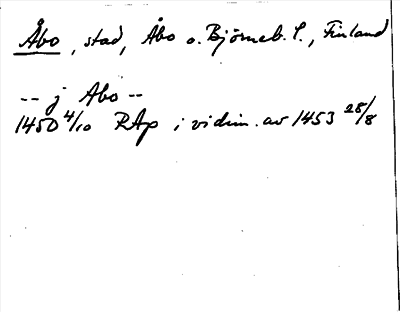 Åbo, stad, Åbo o. Björneb. l., Finland
-- j Abo --
1450 4/10 RAp i vidim. av 1453 28/8